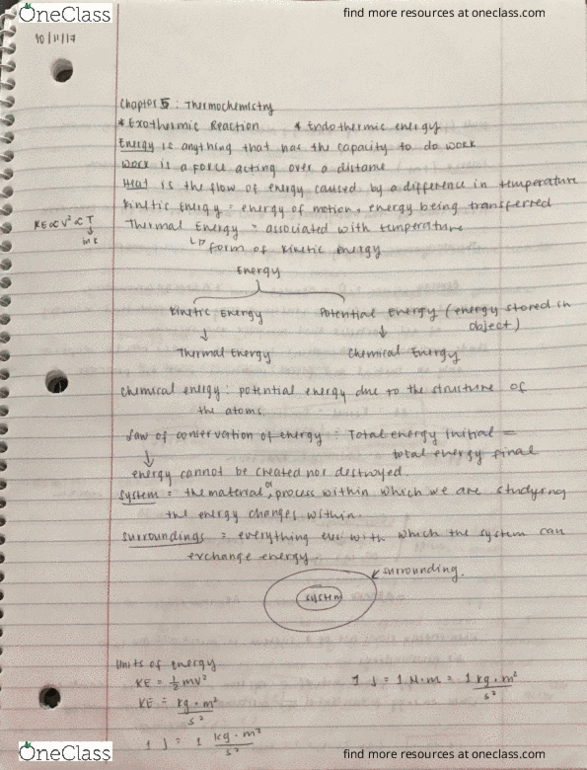 OneClass
find more resources at oneclass.com
10/11/17
Chapter 5 : Thermochemistry
* Exothermic Reaction * Endothermic energy
Energy is anything that has the capacity to do work
Work is a force acting over a distance
Heat is the flow of energy caused by a difference in temperature
Kinetic Energy = energy of motion, energy being transferred
KE ∝ V² ∝ T
Thermal Energy = associated with temperature
↳ form of kinetic energy
Energy
Kinetic Energy Potential Energy (energy stored in
object)
↓ ↓
Thermal Energy Chemical Energy
Chemical energy : potential energy due to the structure of
the atoms
Law of conservation of energy : Total energy initial =
total energy final
↓
energy cannot be created nor destroyed.
System = the material or process within which we are studying
the energy changes within.
Surroundings = everything else with which the system can
exchange energy.
surrounding.
system
Units of energy
KE = ½ mv² 1 J = 1 N·m = 1 kg·m²/s²
KE = kg·m²/s²
1 J = 1 kg·m²/s²
OneClass
find more resources at oneclass.com